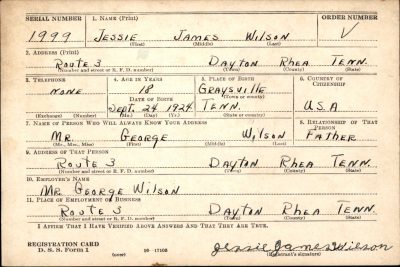 SERIAL NUMBER 1. NAME (Print) ORDER NUMBER
1999 JESSIE JAMES WILSON V
(First) (Middle) (Last)
2. ADDRESS (Print)
ROUTE 3 DAYTON RHEA TENN.
(Number and street or R. F. D. number) (Town) (County) (State)
3. TELEPHONE 4. AGE IN YEARS 5. PLACE OF BIRTH 6. COUNTRY OF CITIZENSHIP
NONE 18 GRAYSVILLE
DATE OF BIRTH (Town or county)
SEPT. 24 1924 TENN. U.S.A
(Exchange) (Number) (Mo.) (Day) (Yr.) (State or country)
7. NAME OF PERSON WHO WILL ALWAYS KNOW YOUR ADDRESS 8. RELATIONSHIP OF THAT PERSON
MR. GEORGE WILSON FATHER
(Mr., Mrs., Miss) (First) (Middle) (Last)
9. ADDRESS OF THAT PERSON
ROUTE 3 DAYTON RHEA TENN.
(Number and street or R. F. D. number) (Town) (County) (State)
10. EMPLOYER'S NAME
MR. GEORGE WILSON
11. PLACE OF EMPLOYMENT OR BUSINESS
ROUTE 3 DAYTON RHEA TENN.
(Number and street or R. F. D. number) (Town) (County) (State)
I AFFIRM THAT I HAVE VERIFIED ABOVE ANSWERS AND THAT THEY ARE TRUE.
REGISTRATION CARD
D. S. S. Form 1 (over) 16—17105 Jessie James Wilson
(Registrant's signature)